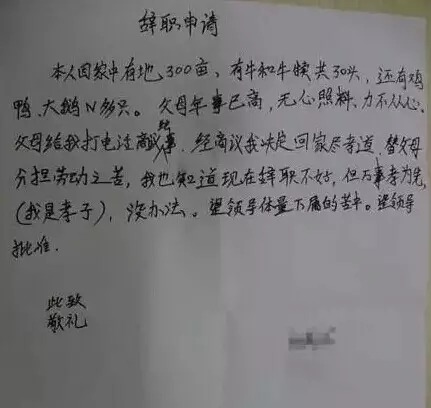 辞职申请
本人因家中有地300亩，有牛和牛犊共30头，还有鸡
鸭、大鹅N多只。父母年事已高，无心照料、力不从心。
父母给我打电话商议事，经商议我决定回家尽孝道 替父母
分担劳动之苦，我也知道现在辞职不好，但万事孝为先，
(我是孝子)，没办法。望领导体量下属的苦中。望领导
批准.
此致
敬礼